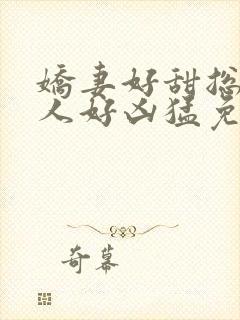 嬌妻好甜揔
人好凶猛免
奇幕